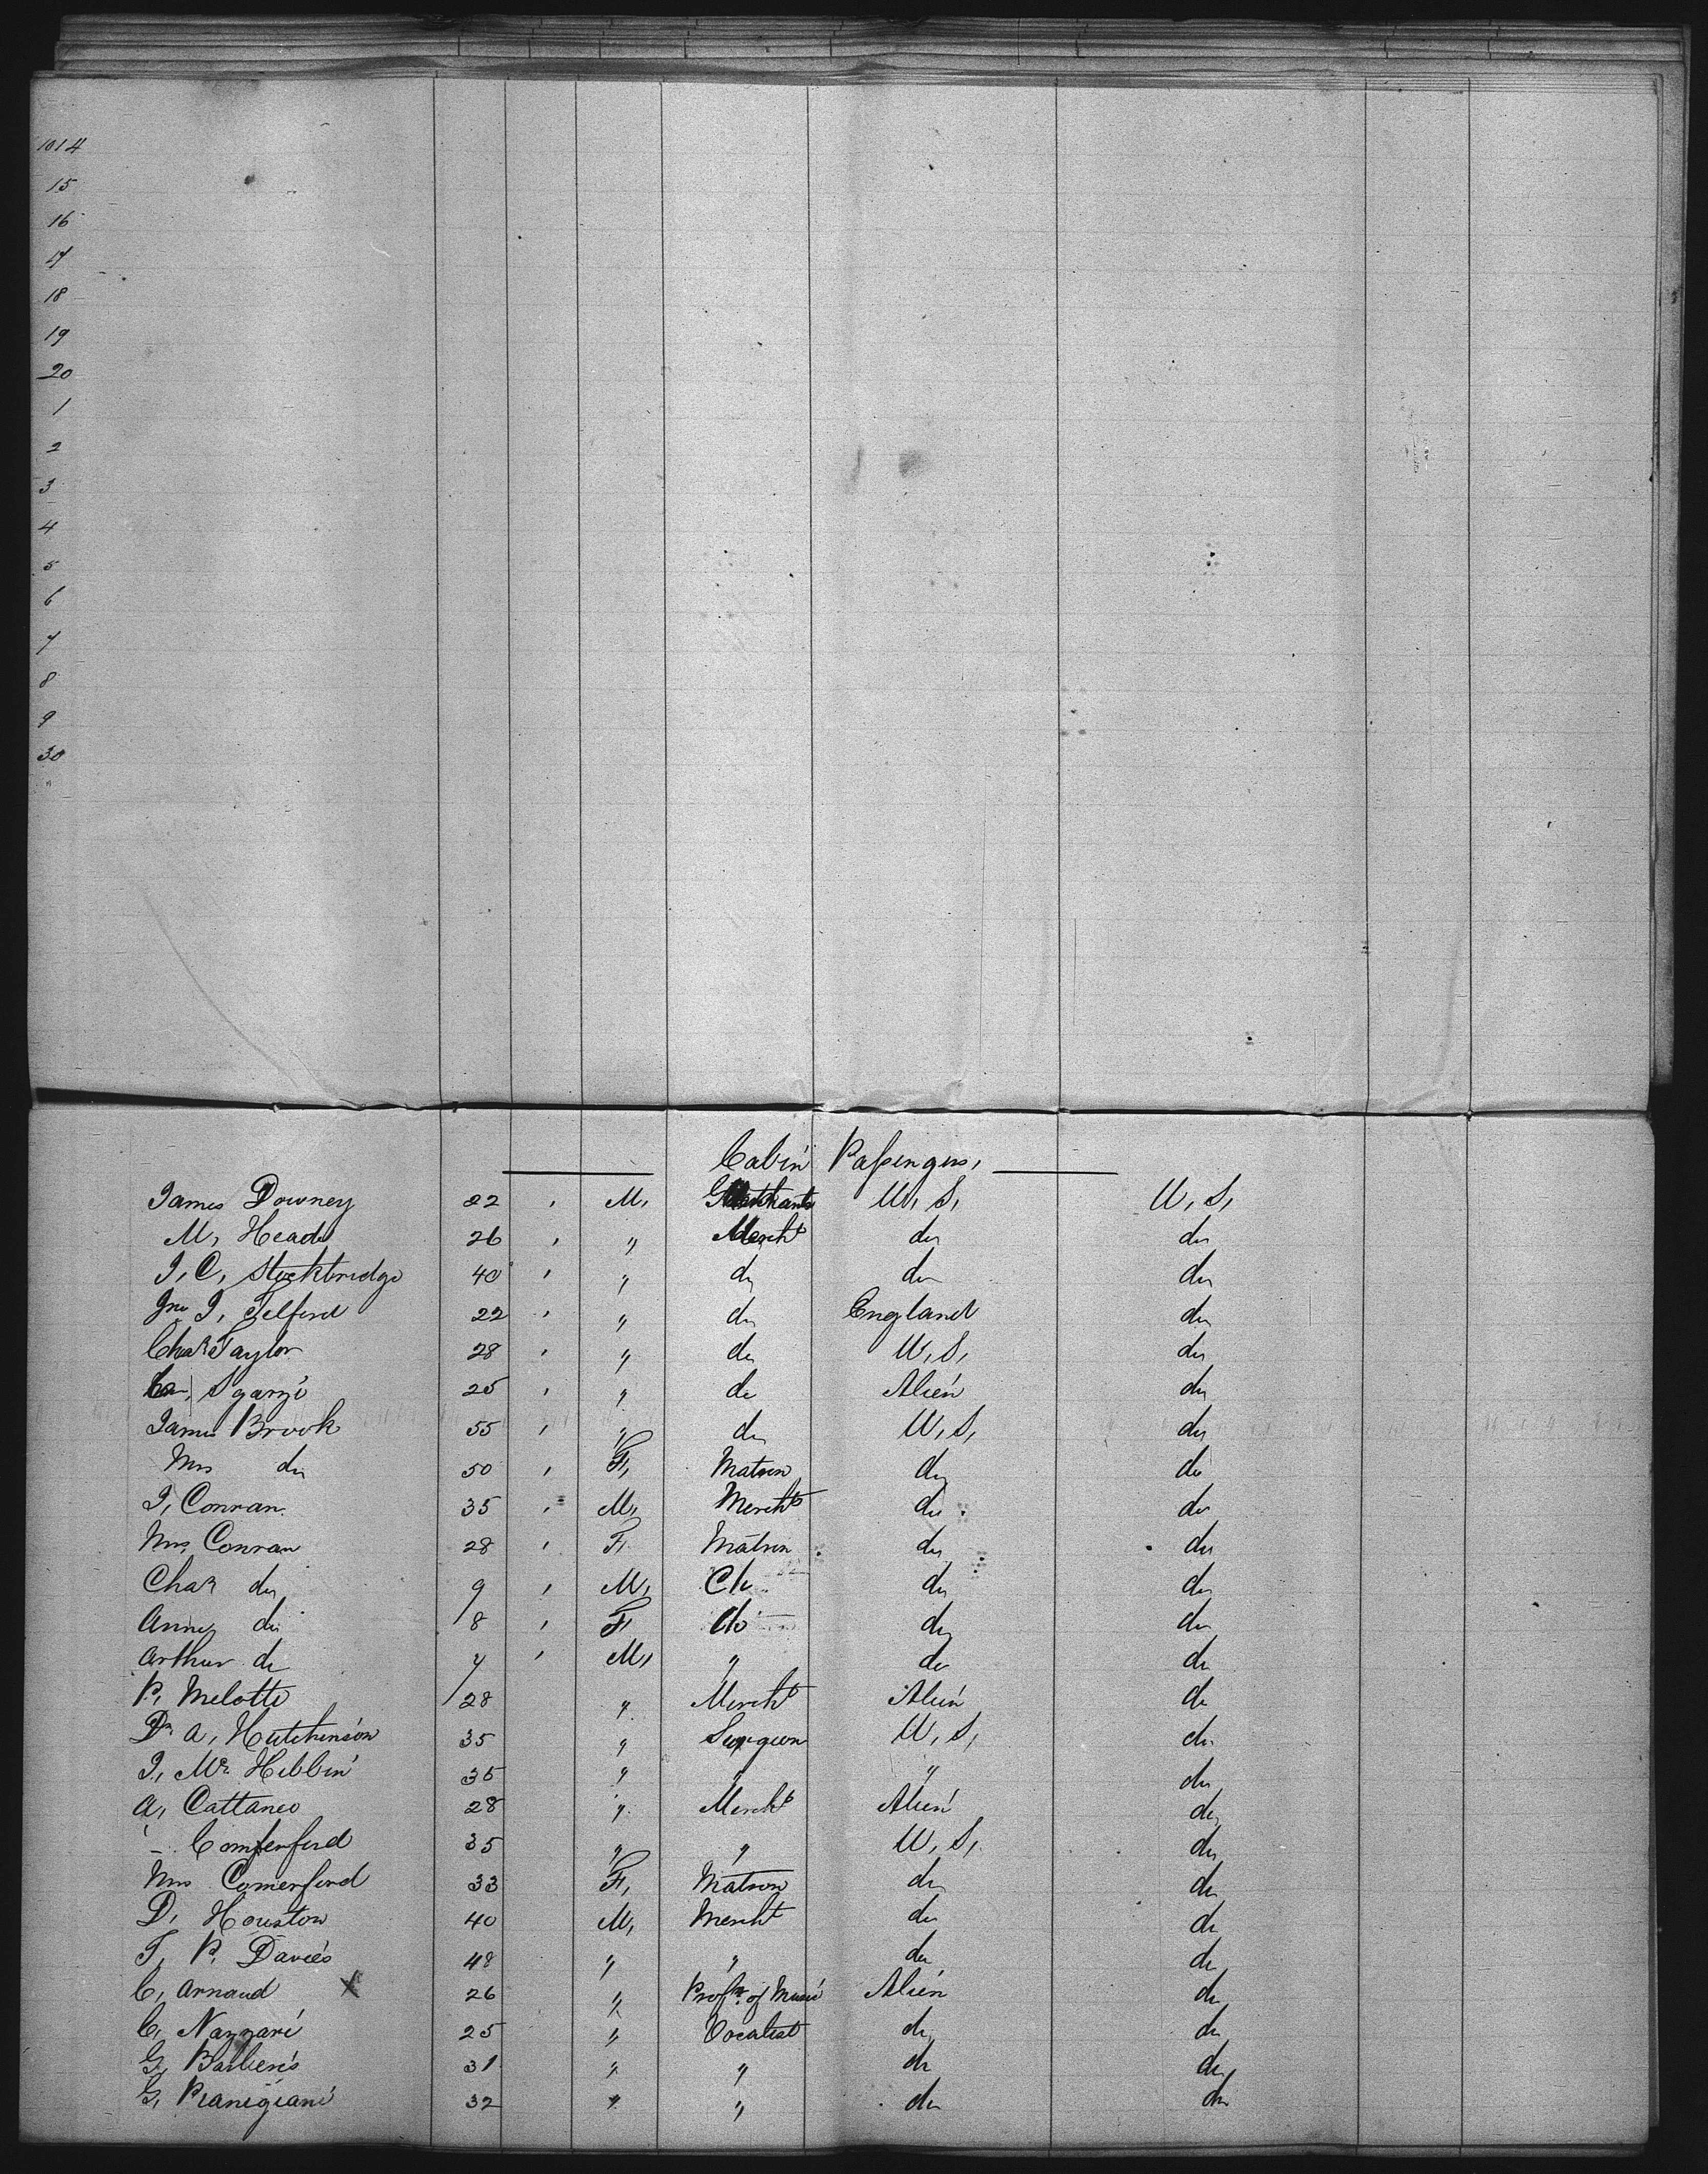 1014
15
16
17
18
19
20
1
2
3
4
5
6
7
8
9
30
Cabin Passengers,
James Downey 22 , M, U, S, U, S,
M, Heade 26 , " Mercht do do
J, C, Stockbridge 40 , " do do do
Jno J, Telford 22 , " do England do
Chas Taylor 28 , " do U, S, do
Sgarzi 25 , " do Alien do
James Brook 55 , " do U, S, do
Mrs do 50 , F, Matron do do
J, Conran 35 , M, Mercht do do
Mrs, Conran 28 , F, Matron do do
Chas do 9 , M, Ch do do
Anney do 8 , F, do do do
Arthur do 7 , M, " do do
P, Melotte 28 " Mercht Alien do
Dr A, Hutchinson 35 " Surgeon U, S, do
J, Mc Hibbin 35 " " " do
A, Cattaneo 28 " Mercht Alien do
" - Comferford 35 " " U, S, do
Mrs Comerford 33 F, Matron do do
D, Houston 40 M, Mercht do do
T, P, Davies 48 " " do do
C, Arnaud X 26 " Profr. of Music Alien do
C, Nazzari 25 " Vocalist do do
G, Barbieris 31 " " do do
G, 32 " " do do